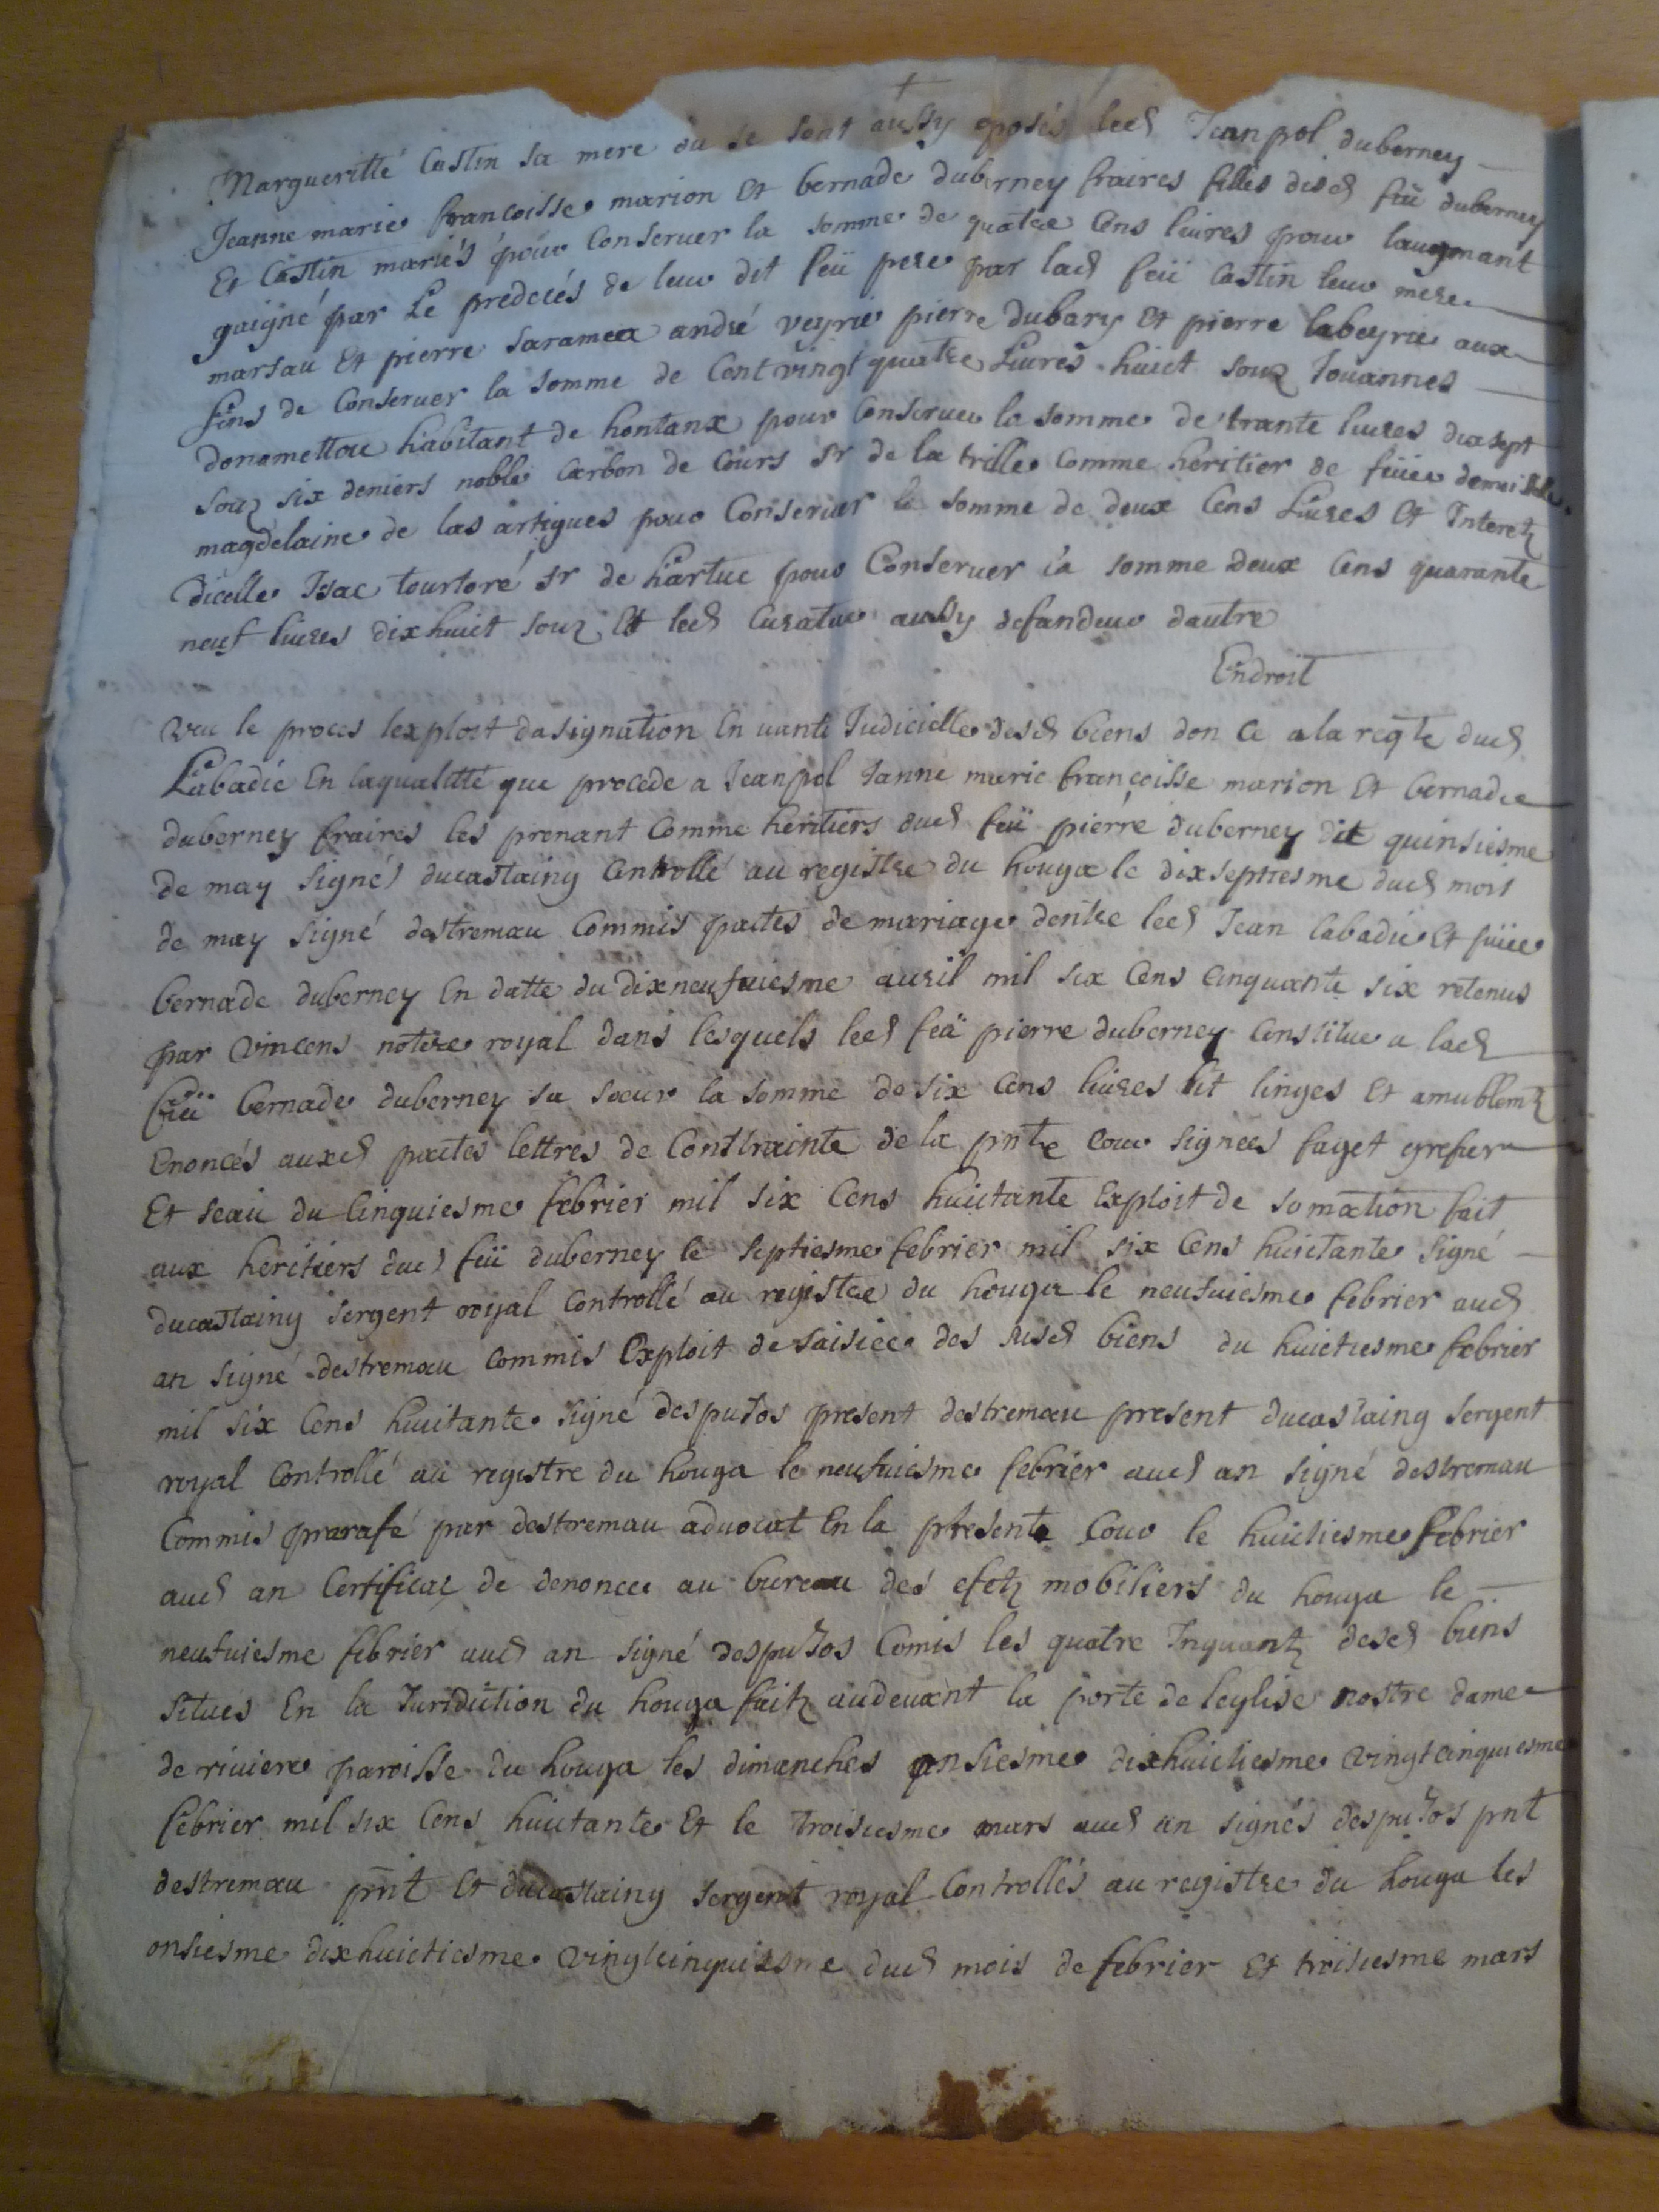 Margueritte Castin sa mere ou se sont aussy oposés led Jean pol duberney
Jeanne marie francoisse marion Et bernade duberney fraires filles desd feü duberney
Et Castin mariés pour Conserver la somme de quatre Cens livres pour laugmant
gaigné par Le predecés de leur dit feü pere par lad feü Castin leur mere
marsau Et pierre saramea andré veyrie pierre dubary Et pierre labeyrie aux
fins de Conserver la somme de Cent vingt quatre Livres huict souz Jouannes
donamettou habitant de hontanx pour Conserver la somme de trante livres dix sept
souz six deniers noble Carbon de Cours sr de la trille Comme heritier de feüe demoiselle
magdelaine de las artigues pour Conserver la somme de deux Cens Livres Et Interetz
dicelle Isac tourtoré sr de hartuc pour Conserver la somme deux Cens quarante
neuf livres dix huict souz Et led Curateur aussy defandeur dautre
Endroit
Veu le proces lexploit dasignation En vante Judicielle desd biens don Ce a la reqte dud
Labadie En laqualitté que procede a Jean pol Janne marie françoisse marion Et bernade
duberney fraires les prenant Comme heritiers dud feü pierre duberney dit quinsiesme
de may signés ducastaing Controllé au registre du houga le dixseptiesme dud mois
de may signé destremau Commis pactes de mariage dentre led Jean labadie Et feüe
bernade duberney En datte du dixneufuiesme auril mil six Cens Cinquante six retenus
par Vincens notere royal dans lesquels led feü pierre duberney Constitue a lad
feü bernade duberney sa soeur la somme de six Cens livres lit linges Et amublemtz
Enoncés auxd pactes lettres de Contrainte de la pnte Cour signees faget grefier
Et seau du Cinquiesme febrier mil six Cens huictante Exploit de somation fait
aux heritiers dud feü duberney le septiesme febrier mil six Cens huictante signé
ducastaing sergent royal Controllé au registre du houga le neufuiesme febrier aud
an signé destremau Commis Exploit de saisiee des susd biens du huictiesme febrier
mil six Cens huictante signé despujos present destremau present ducastaing sergent
royal Controllé au registre du houga le neufuiesme febrier aud an signé destremau
Commis parafé par destremau aduocat En la presente Cour le huictiesme febrier
aud an Certificat de denonce au bureau des efetz mobiliers du houga le
neufuiesme febrier aud an signé despujos Comis les quatre Inquantz desd biens
situés En la Juridiction du houga faitz audeuant la porte de leglise nostre dame
de riviere paroisse du houga les dimanches onsiesme dixhuictiesme Vingtcinquiesme
febrier mil six Cens huictante Et le troisiesme mars aud an signés despujos pnt
destremau pnt Et ducastaing sergent royal Controllés au registre du houga les
onsiesme dixhuictiesme Vingtcinquiesme dud mois de febrier Et troisiesme mars